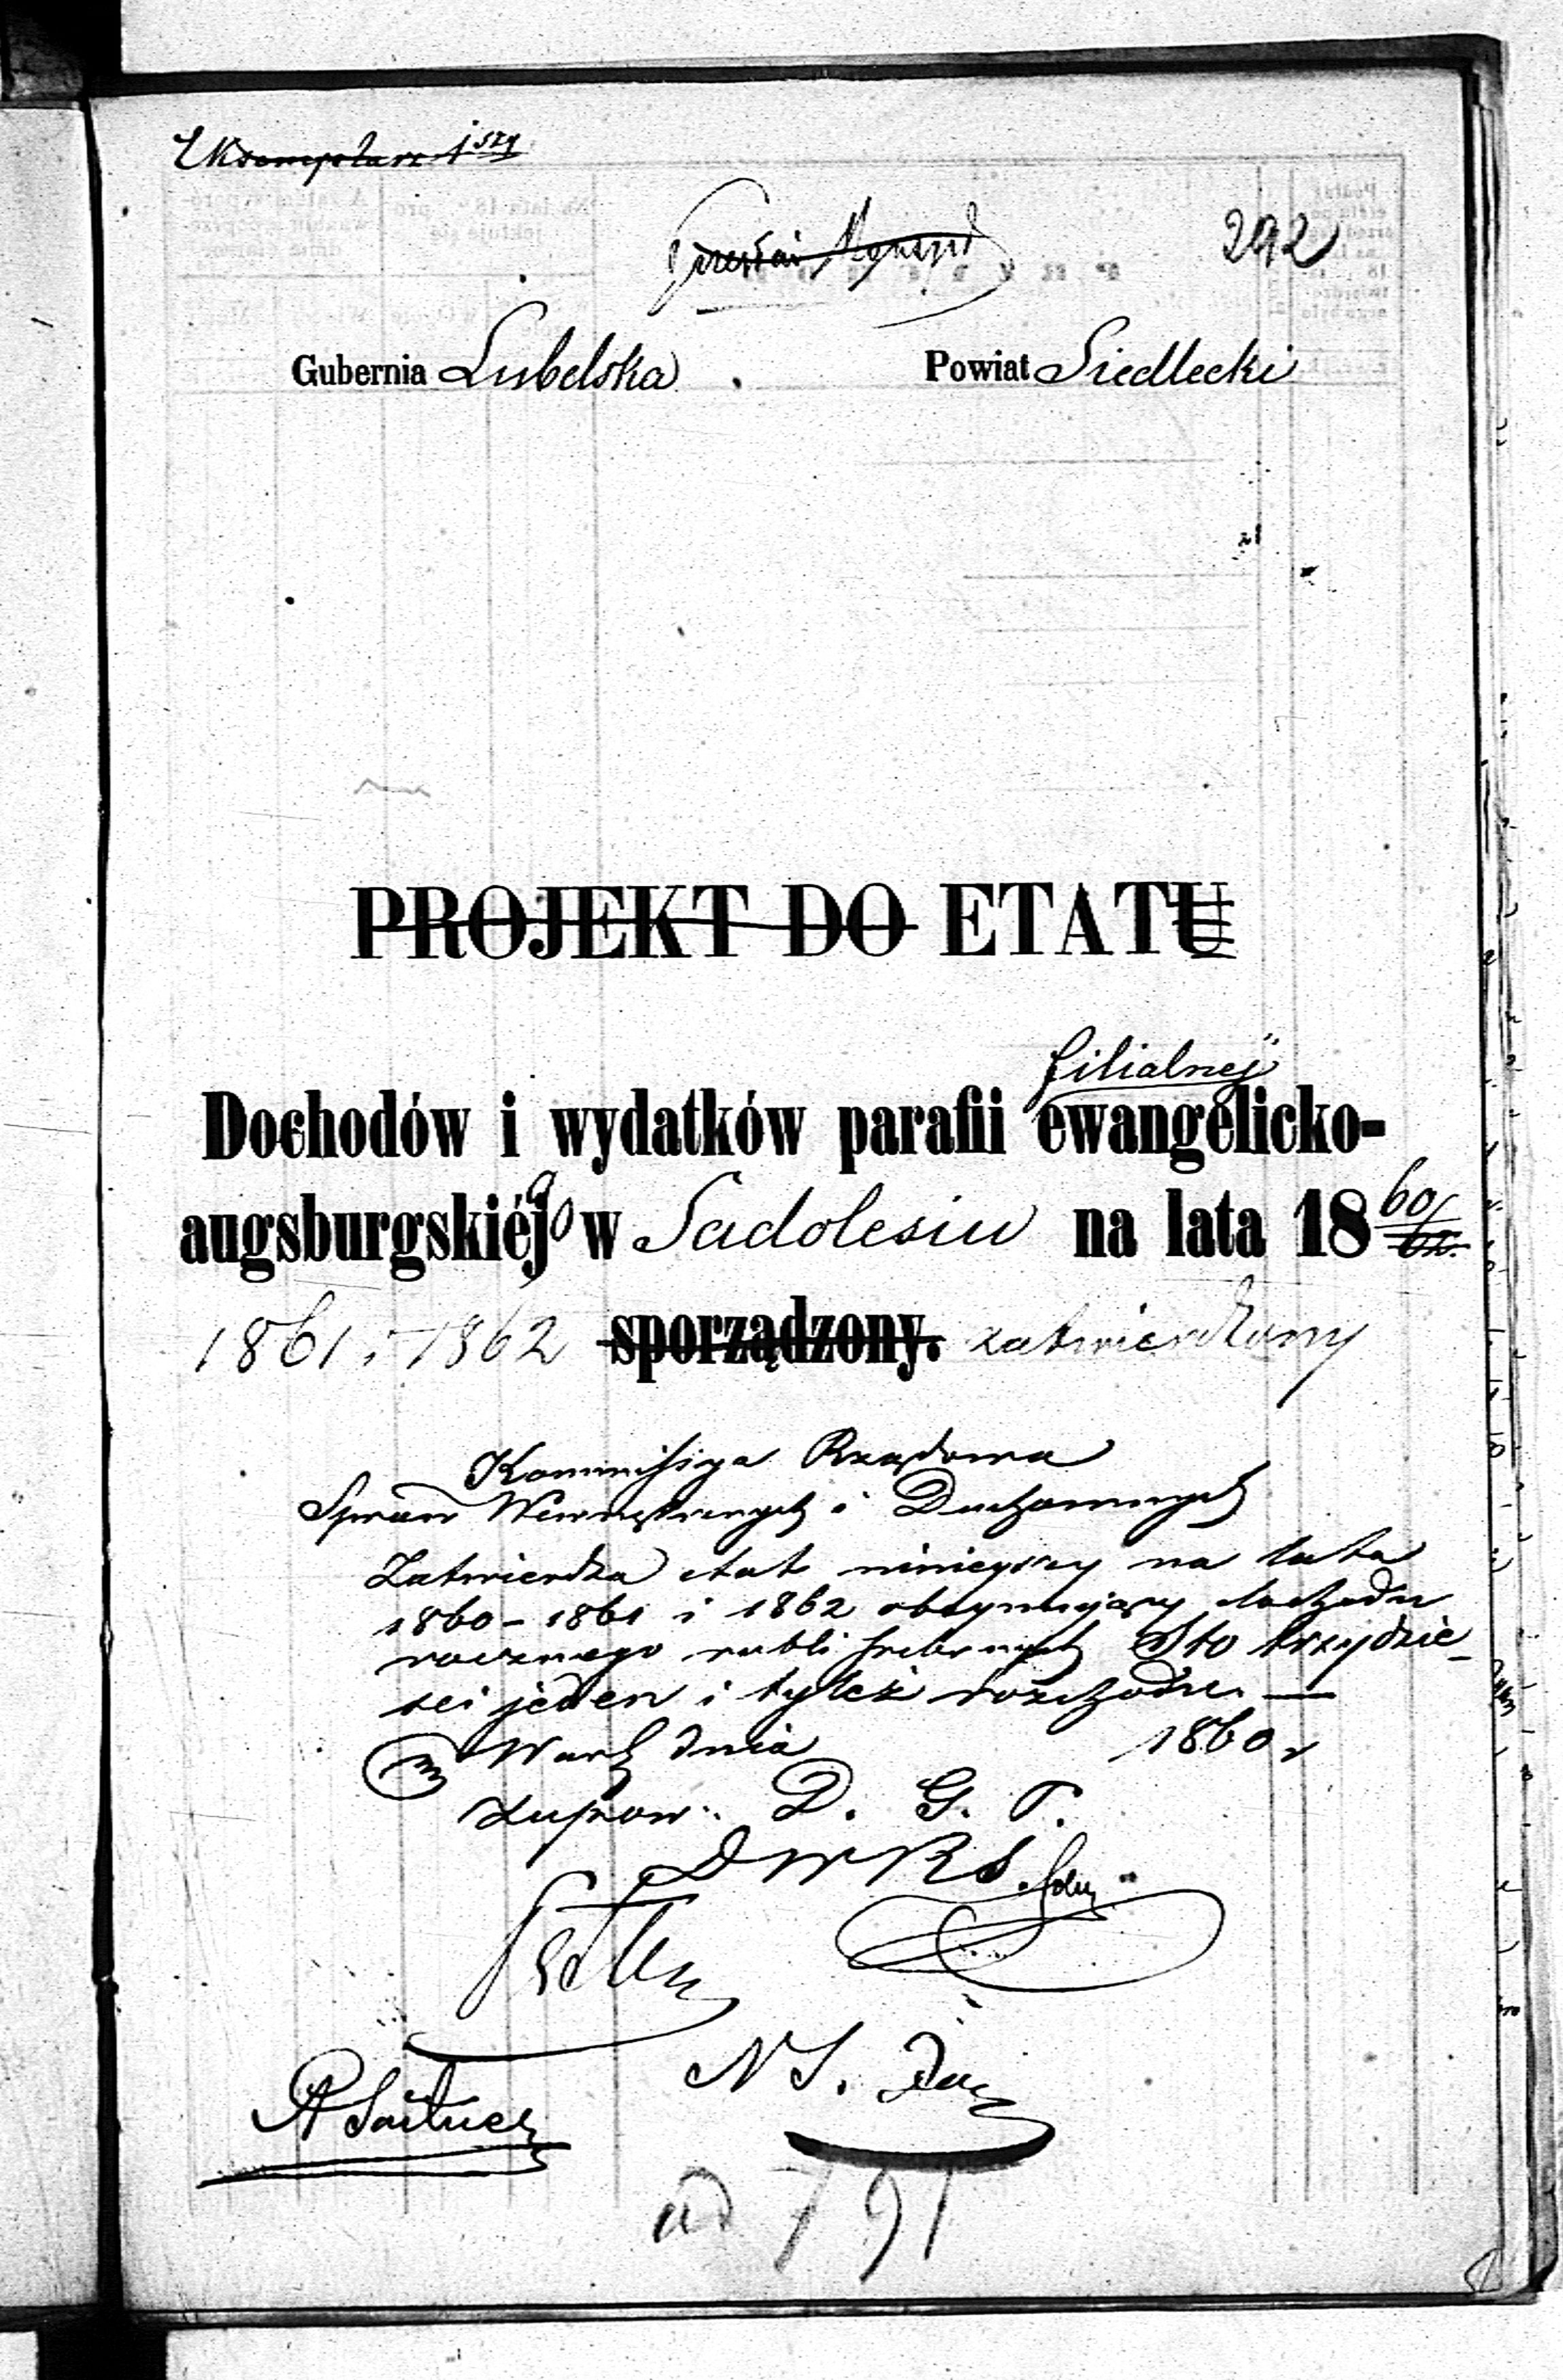 Eksemplarz 1szy
292
Gubernia Lubelska Powiat Siedlecki
PROJEKT DO ETATU
filialnej
Dochodów i wydatków parafii ewangelicko-
augsburgskiéj w Sadolesiu na lata 18 60/
1861 i 1862 sporządzony. zatwierdzony
Kommissya Rządowa
Spraw Wewnętrznych i Duchownych
Zatwierdza etat niniejszy na lata
1860 - 1861 i 1862 obejmujący dochodu
rocznego rubli srebrnych Sto trzydzie-
sci jeden i tyleż rozchodu. —
w Warsz dnia 1860 r
D. G. P.
N S.
ad 791